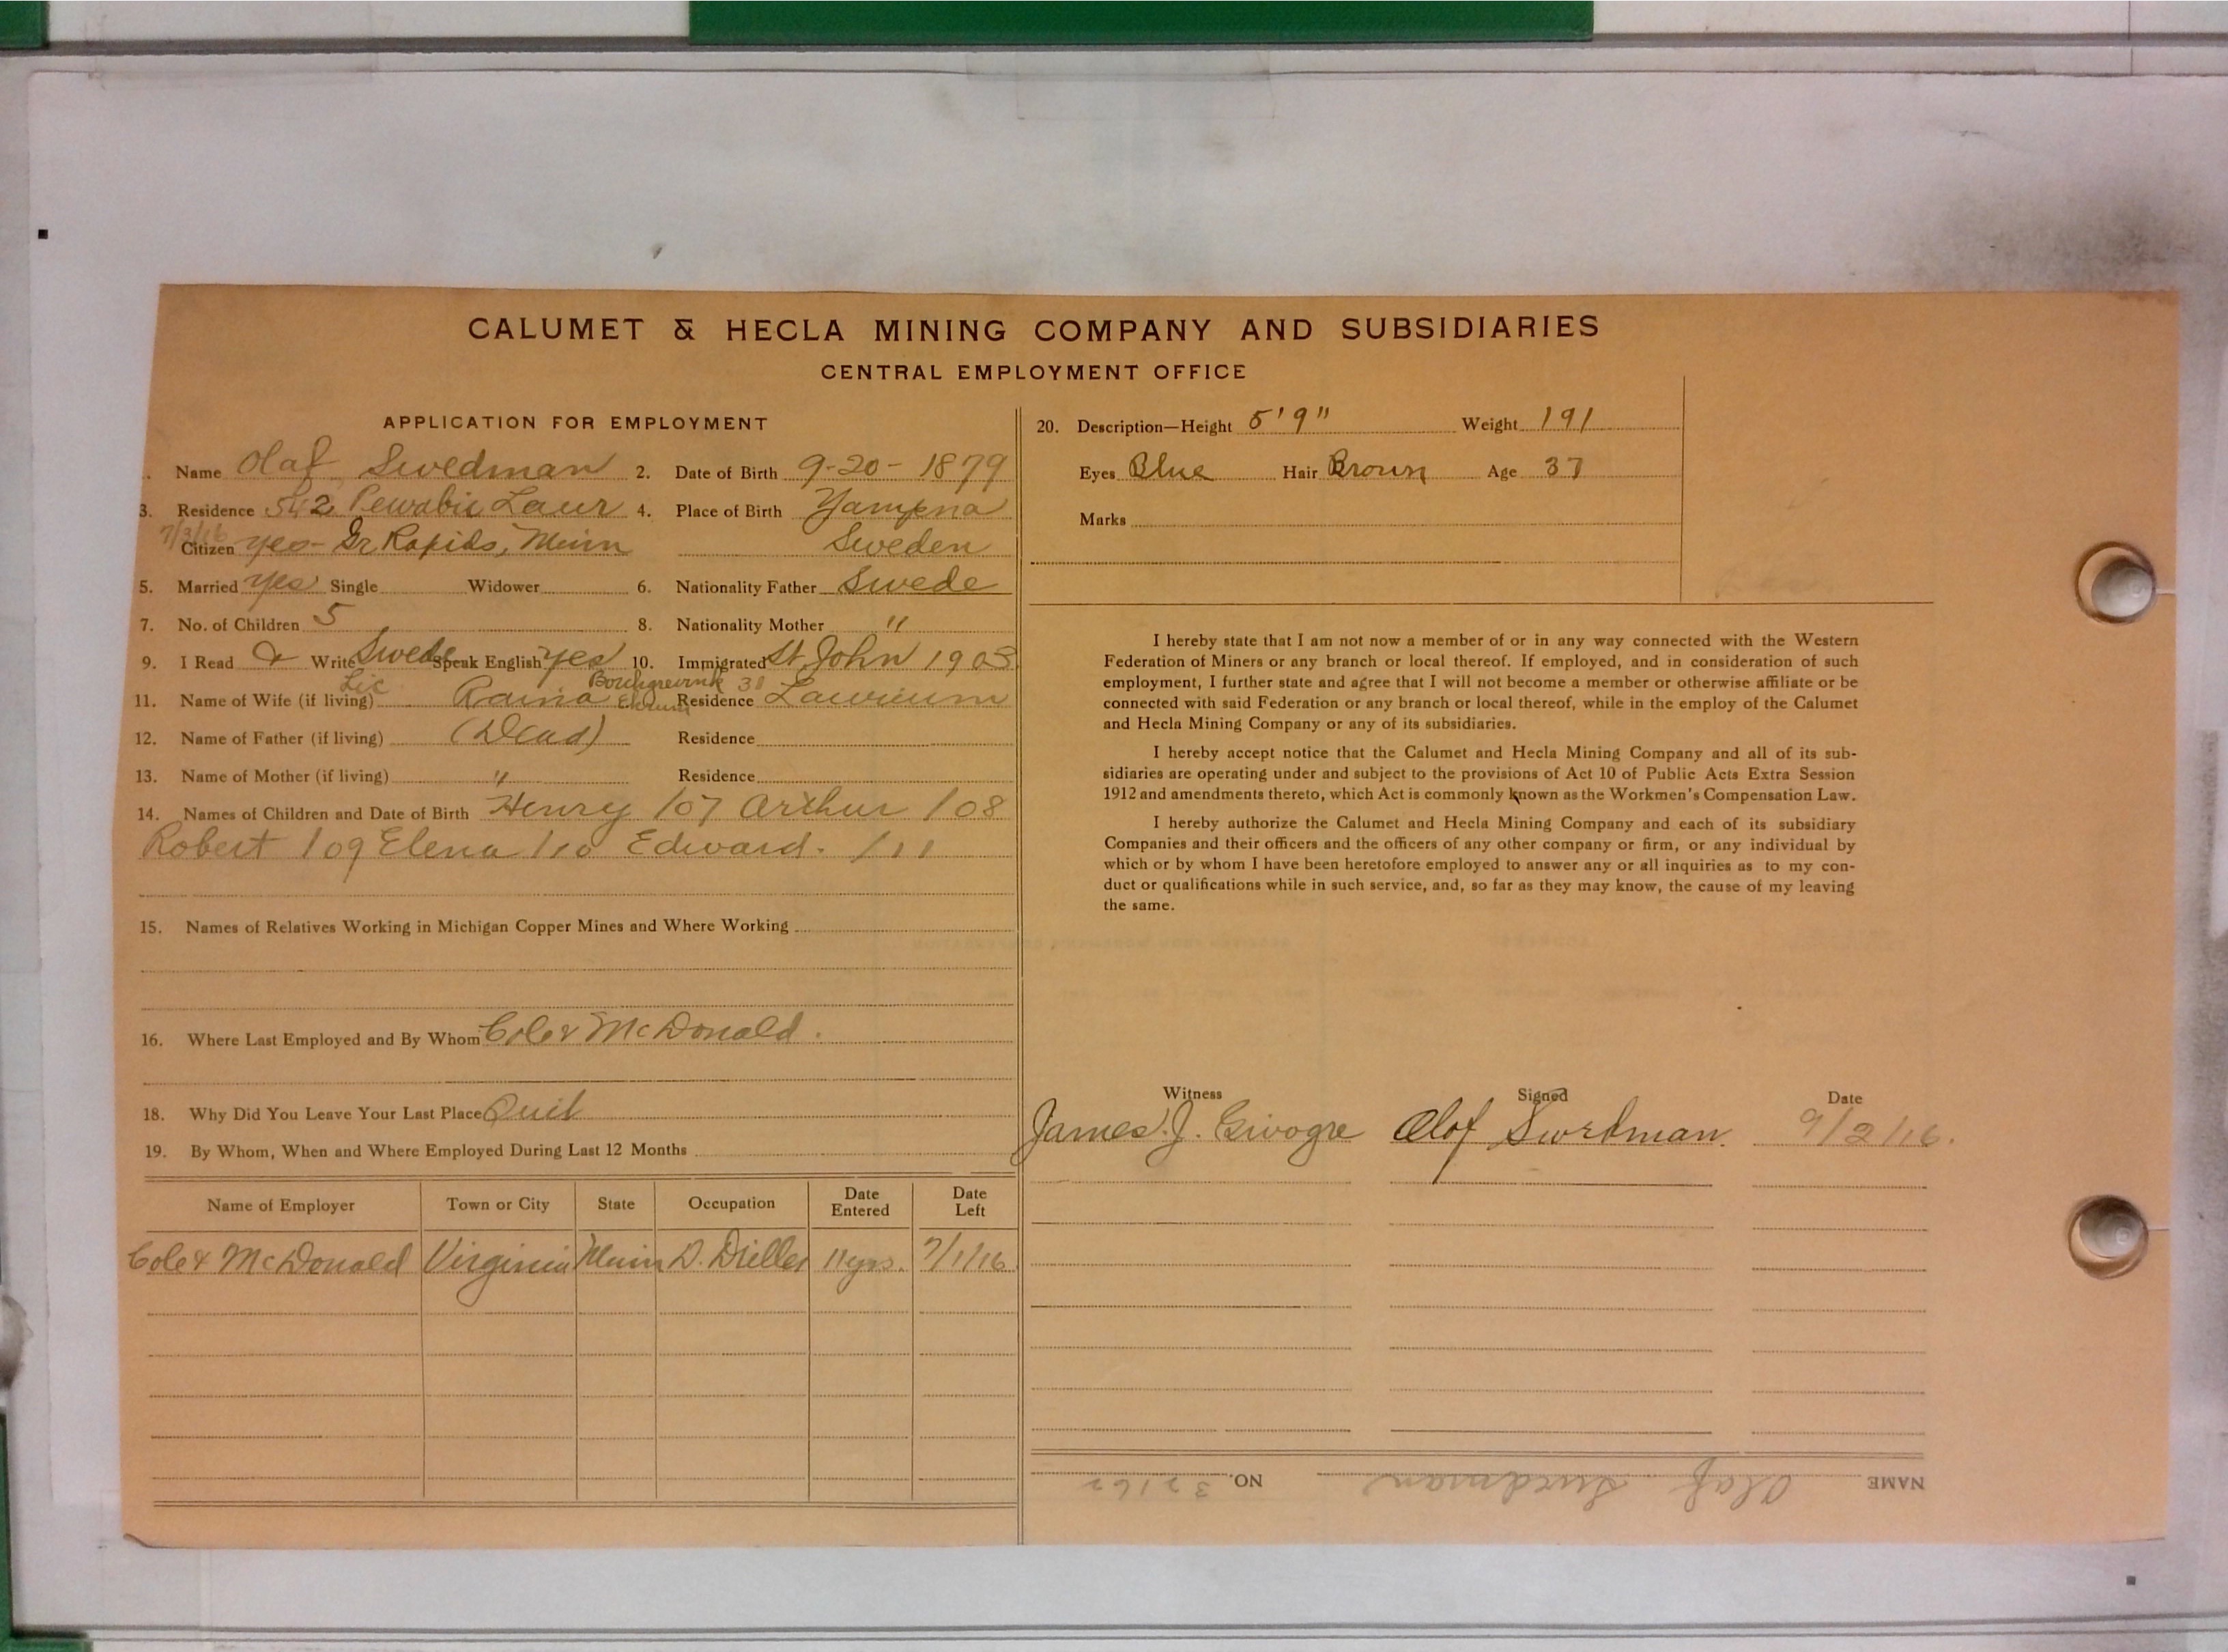 CALUMET & HECLA MINING COMPANY AND SUBSIDIARIES
CENTRAL EMPLOYMENT OFFICE
APPLICATION FOR EMPLOYMENT
Name Olaf Swedman 2. Date of Birth 9-20-1879
3. Residence Pewabic Laur 4. Place of Birth Yampna
7/3/16
Citizen yes - Gr Rapids, Minn Sweden
5. Married yes Single Widower 6. Nationality Father Swede
7. No. of Children 5 8. Nationality Mother "
9. I Read & Write Swede Speak English yes 10. Immigrated St John 1903
Lic 38
11. Name of Wife (if living) Raina Residence Laurium
12. Name of Father (if living) (Dead) Residence
13. Name of Mother (if living) " Residence
14. Names of Children and Date of Birth Henry /07 Arthur /08
Robert /09 Elena /10 Edward. /11
15. Names of Relatives Working in Michigan Copper Mines and Where Working
16. Where Last Employed and By Whom Cole & McDonald.
18. Why Did You Leave Your Last Place Quit
19. By Whom, When and Where Employed During Last 12 Months
Name of Employer Town or City State Occupation Date Entered Date Left
Cole & McDonald Virginia Minn D. Driller 11 yrs. 7/1/16
20. Description—Height 5'9" Weight 191
Eyes Blue Hair Brown Age 37
Marks
I hereby state that I am not now a member of or in any way connected with the Western
Federation of Miners or any branch or local thereof. If employed, and in consideration of such
employment, I further state and agree that I will not become a member or otherwise affiliate or be
connected with said Federation or any branch or local thereof, while in the employ of the Calumet
and Hecla Mining Company or any of its subsidiaries.
I hereby accept notice that the Calumet and Hecla Mining Company and all of its sub-
sidiaries are operating under and subject to the provisions of Act 10 of Public Acts Extra Session
1912 and amendments thereto, which Act is commonly known as the Workmen's Compensation Law.
I hereby authorize the Calumet and Hecla Mining Company and each of its subsidiary
Companies and their officers and the officers of any other company or firm, or any individual by
which or by whom I have been heretofore employed to answer any or all inquiries as to my con-
duct or qualifications while in such service, and, so far as they may know, the cause of my leaving
the same.
Witness Signed Date
James. J. Olof Swedman. 9/2/16.
NAME Olaf Swedman NO. 32162